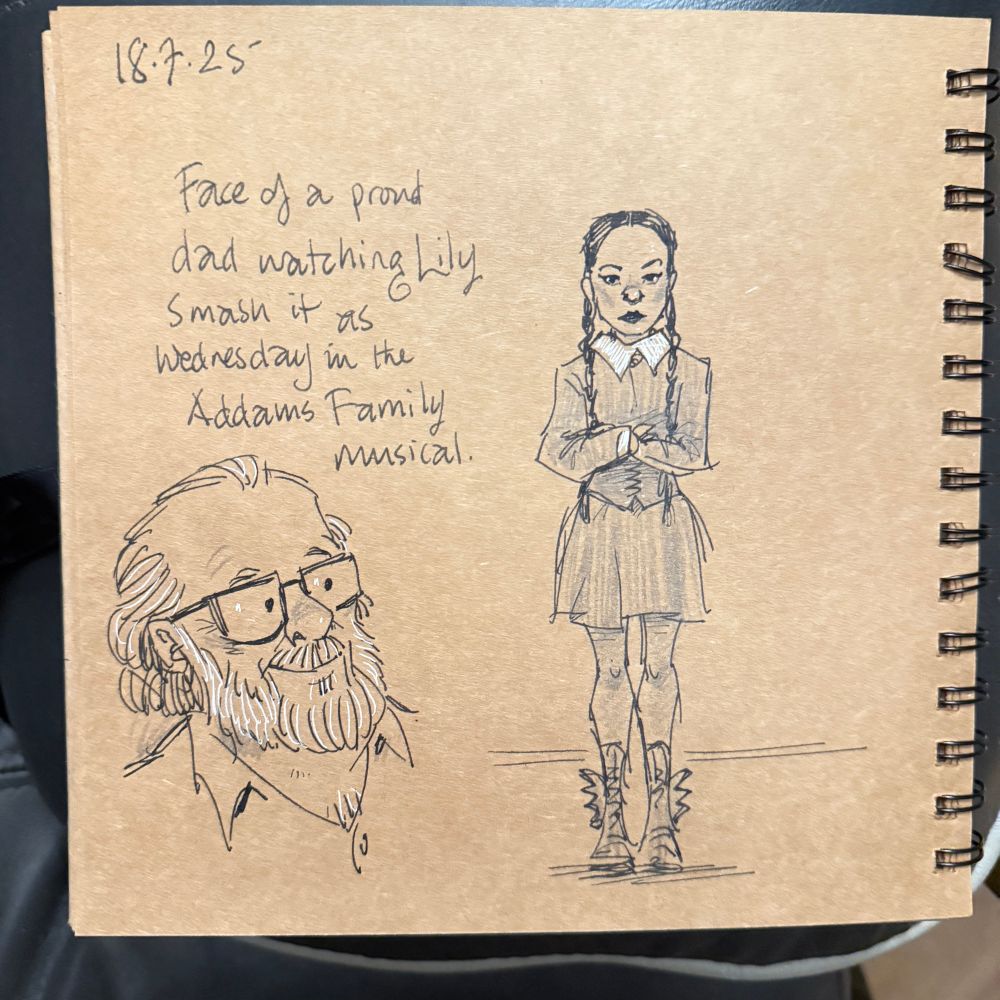 18.7.25
Face of a proud
dad watching Lily
smash it as
Wednesday in the
Addams Family
musical.